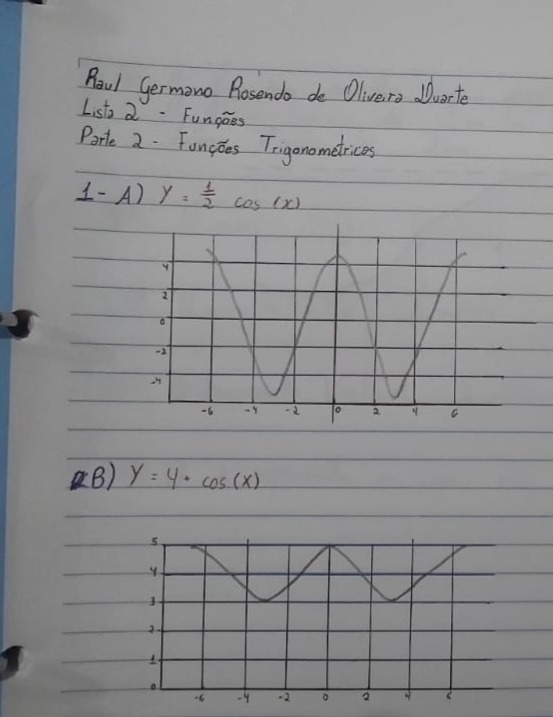 Raul Germano Rosendo de Oliveira Duarte
Lista 2 - Funções
Parte 2 - Funções Trigonométricas
1- A) Y = 1/2 cos (x)
4
2
0
-2
-4
-6 -4 -2 0 2 4 6
B) Y = 4 + cos(x)
5
4
3
2
1
0
-6 -4 -2 0 2 4 6